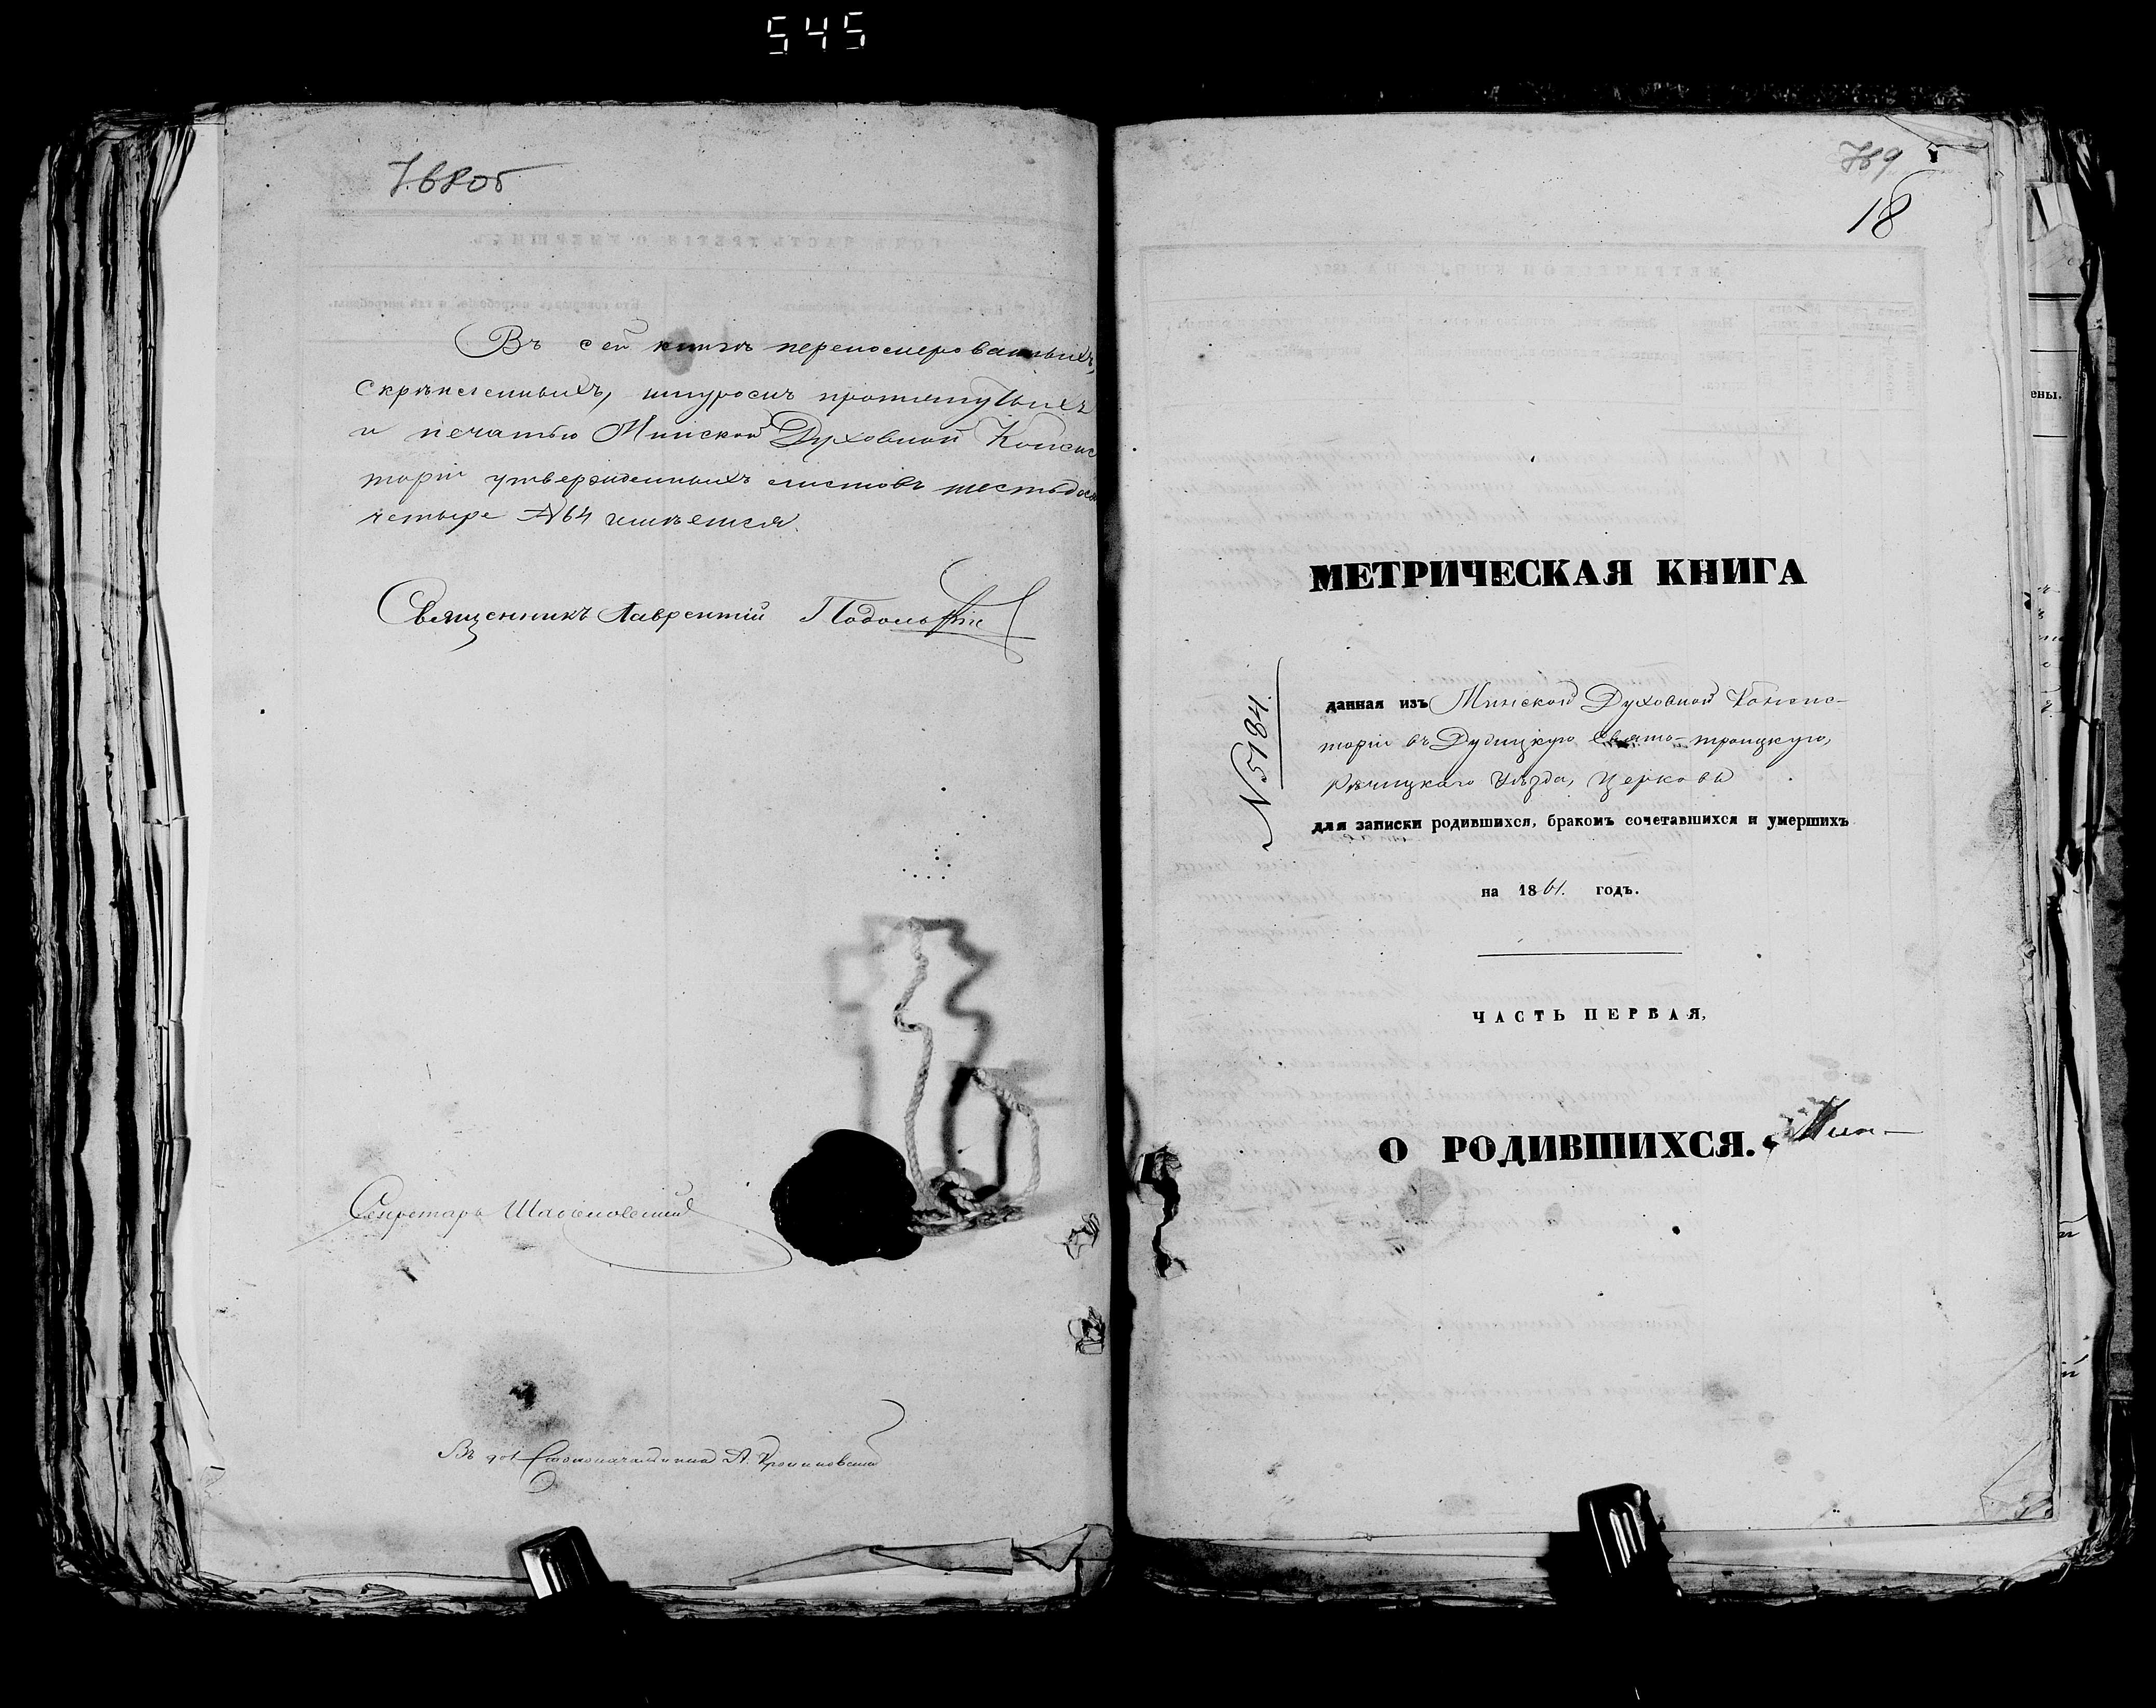 545
768об
Въ сей книгѣ перенумерованныхъ,
скрѣпленныхъ, шнуромъ протянутыхъ
и печатью Минской Духовной Консис
торіи утвержденныхъ листовъ шестьдесят
четыре № 64 имѣется.
Священникъ Лаврентій
Секретарь
Въ Столоначальника А.
769
18
МЕТРИЧЕСКАЯ КНИГА
№ 5184.
данная изъ Минской Духовной Консис-
торіи въ Дудицкую Свято-троицкую,
Рѣчицкаго Уѣзда, Церковь
для записки родившихся, бракомъ сочетавшихся и умершихъ
на 1861. годъ.
ЧАСТЬ ПЕРВАЯ,
О РОДИВШИХСЯ.